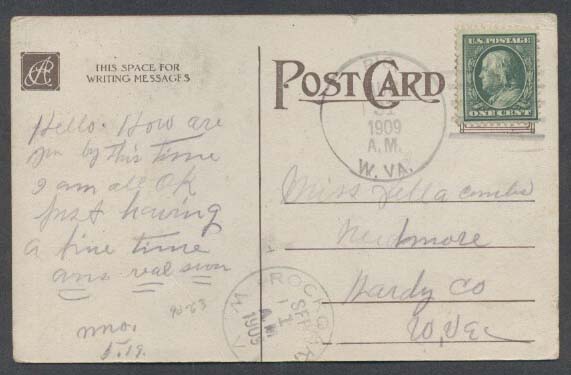 THIS SPACE FOR
WRITING MESSAGES
POST CARD
U.S. POSTAGE
ONE CENT
31
1909
A.M.
W. VA.
Hello. How are
you by this time
I am all OK
just having
a fine time
ans real soon
90-63
Miss Zella Combs
Needmore
Hardy Co
W, Va
ROCKOAK
SEP
1
A.M.
1909
W. VA